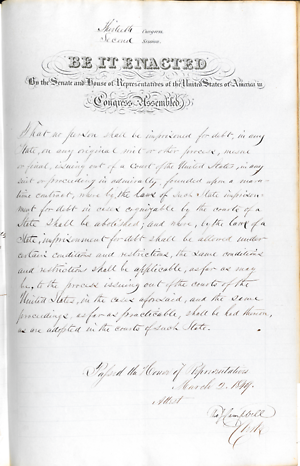 Thirtieth Congress
Second Session
BE IT ENACTED
By the Senate and House of Representatives of the United States of America in
Congress Assembled,
That no person shall be imprisoned for debt, in any
State, on any original writ or other process, mesne
or final, issuing out of a Court of the United States, in any
suit or proceeding in admiralty, founded upon a mari-
time contract, where, by the law of such State imprison-
ment for debt in cases cognizable by the courts of a
State shall be abolished; and where, by the law of a
State, imprisonment for debt shall be allowed under
certain conditions and restrictions, the same conditions
and restrictions shall be applicable, as far as may
be, to the process issuing out of the courts of the
United States, in the cases aforesaid, and the same
proceedings, as far as practicable, shall be had therein,
as are adopted in the courts of such State.
Passed the House of Representatives
March 2, 1849.
Attest
Campbell
Clerk